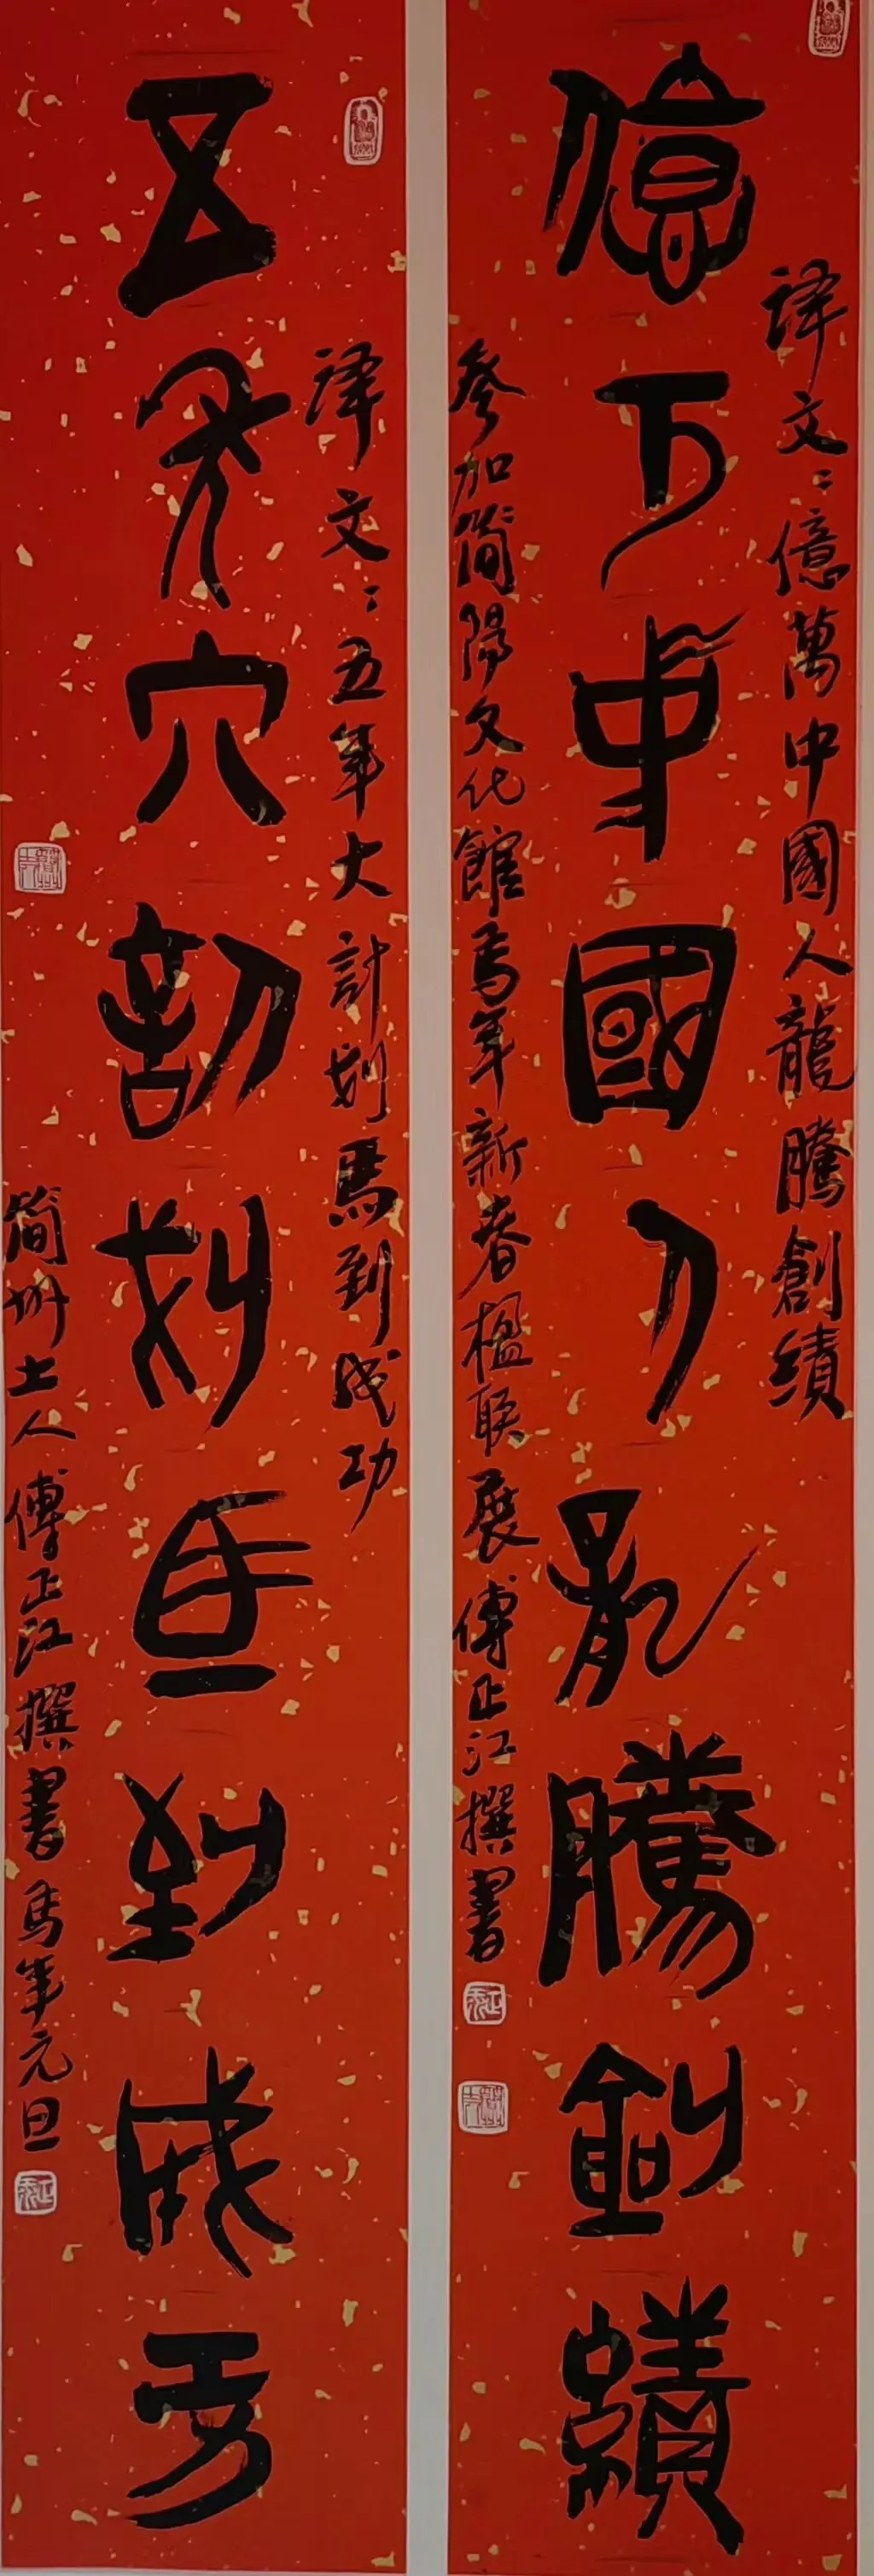 億万中國人龍騰創績
译文：億萬中國人龍騰創績
參加简陽文化館馬年新春楹联展傅正江撰書
五年大計划馬到成功
译文：五年大計划馬到成功
简州土人傅正江撰書馬年元旦